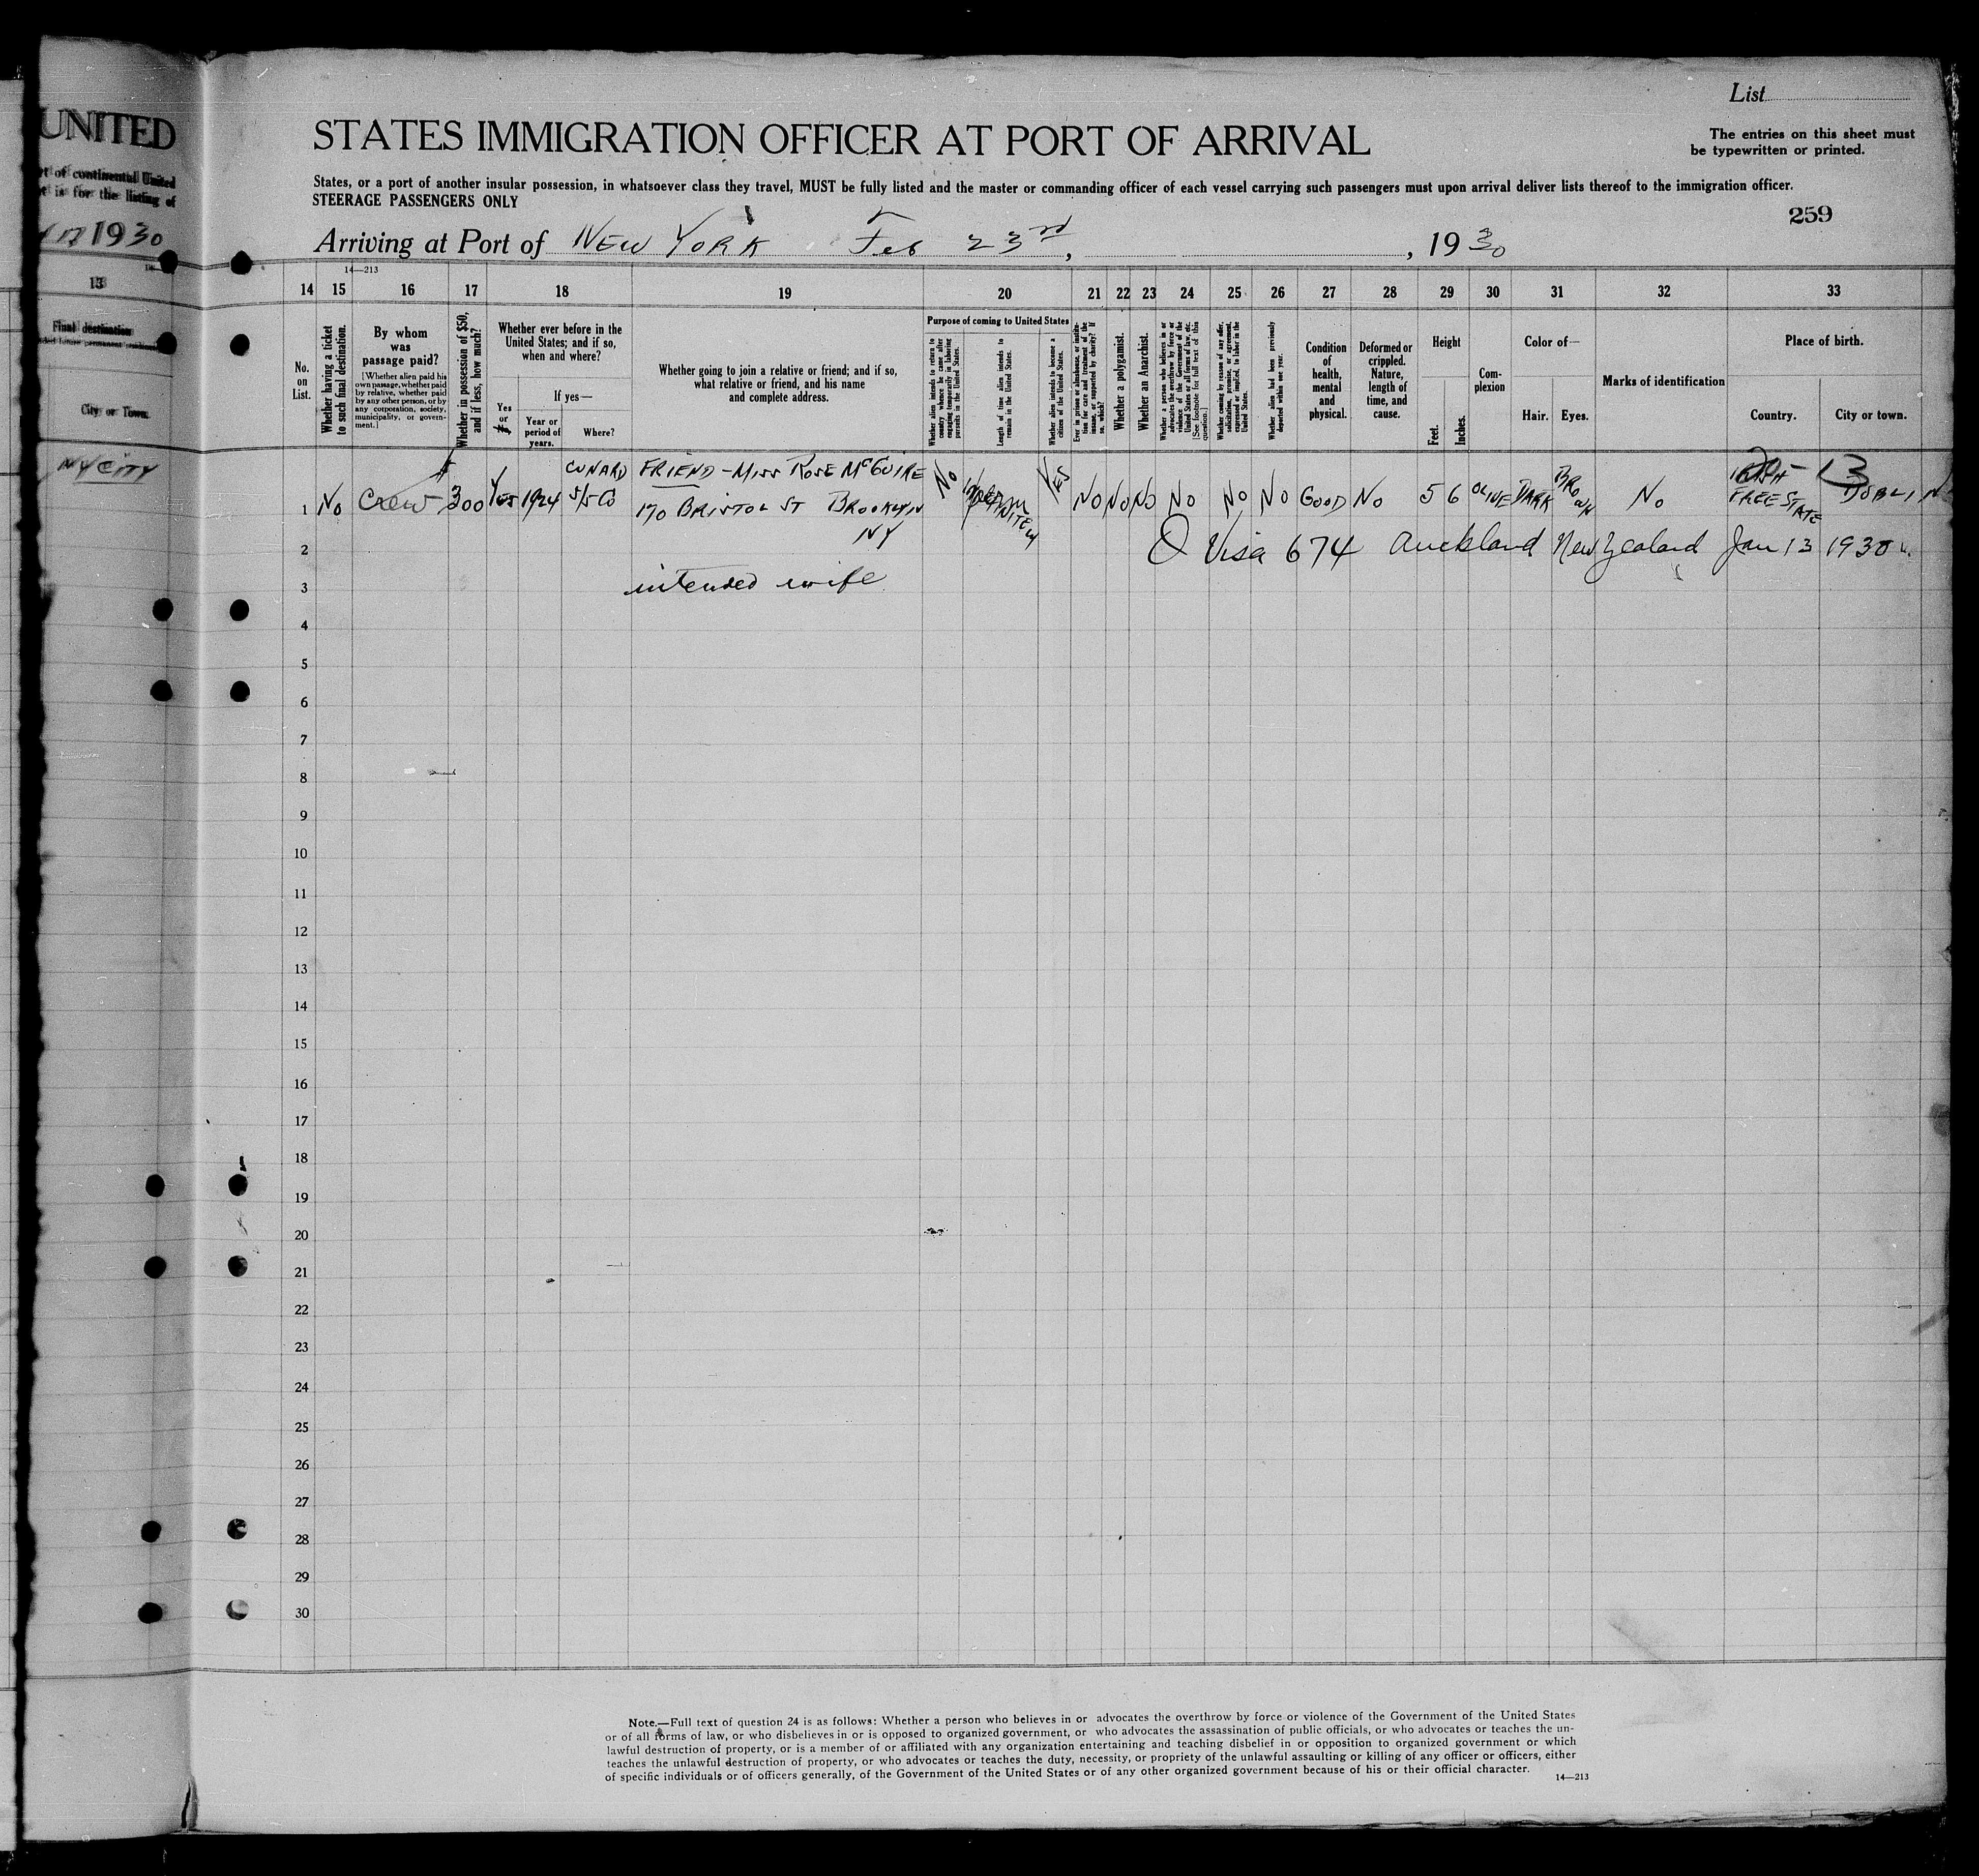 UNITED
STATES IMMIGRATION OFFICER AT PORT OF ARRIVAL
List
The entries on this sheet must
be typewritten or printed.
rt of continental United
t is for the listing of
States, or a port of another insular possession, in whatsoever class they travel, MUST be fully listed and the master or commanding officer of each vessel carrying such passengers must upon arrival deliver lists thereof to the immigration officer.
STEERAGE PASSENGERS ONLY
259
1930
Arriving at Port of NEW YORK Feb 23rd, , 1930
14—213
13
Final destination
City or Town.
NY CITY
14 15 16 17 18 19 20 21 22 23 24 25 26 27 28 29 30 31 32 33
No. on List.
Whether having a ticket to such final destination.
By whom was passage paid?
[Whether alien paid his own passage, whether paid by relative, whether paid by any other person, or by any corporation, society, municipality, or government.]
Whether in possession of $50, and if less, how much?
Whether ever before in the United States; and if so, when and where?
If yes—
Yes or No
Year or period of years.
Where?
Whether going to join a relative or friend; and if so, what relative or friend, and his name and complete address.
Purpose of coming to United States
Whether alien intends to return to country whence he came after engaging temporarily in laboring pursuits in the United States.
Length of time alien intends to remain in the United States.
Whether alien intends to become a citizen of the United States.
Ever in prison or almshouse, or institution for care and treatment of the insane, or supported by charity? If so, which?
Whether a polygamist.
Whether an Anarchist.
Whether a person who believes in or advocates the overthrow by force or violence of the Government of the United States or all forms of law, etc. [See footnote for full text of this question.]
Whether coming by reason of any offer, solicitation, promise, or agreement, expressed or implied, to labor in the United States.
Whether alien had been previously deported within one year.
Condition of health, mental and physical.
Deformed or crippled. Nature, length of time, and cause.
Height
Feet.
Inches.
Complexion
Color of—
Hair.
Eyes.
Marks of identification
Place of birth.
Country.
City or town.
1 No Crew 300 YES 1924 CUNARD S/S Co FRIEND - MISS ROSE McGUIRE No YES NO NO NO NO NO NO GOOD NO 5 6 OLIVE DARK BROWN NO IRISH FREE STATE DUBLIN
170 BRISTOL ST BROOKLYN
NY
2 Visa 674 Auckland New Zealand Jan 13 1930
3 intended wife
4
5
6
7
8
9
10
11
12
13
14
15
16
17
18
19
20
21
22
23
24
25
26
27
28
29
30
Note.—Full text of question 24 is as follows: Whether a person who believes in or advocates the overthrow by force or violence of the Government of the United States
or of all forms of law, or who disbelieves in or is opposed to organized government, or who advocates the assassination of public officials, or who advocates or teaches the un-
lawful destruction of property, or is a member of or affiliated with any organization entertaining and teaching disbelief in or opposition to organized government or which
teaches the unlawful destruction of property, or who advocates or teaches the duty, necessity, or propriety of the unlawful assaulting or killing of any officer or officers, either
of specific individuals or of officers generally, of the Government of the United States or of any other organized government because of his or their official character.
14—213